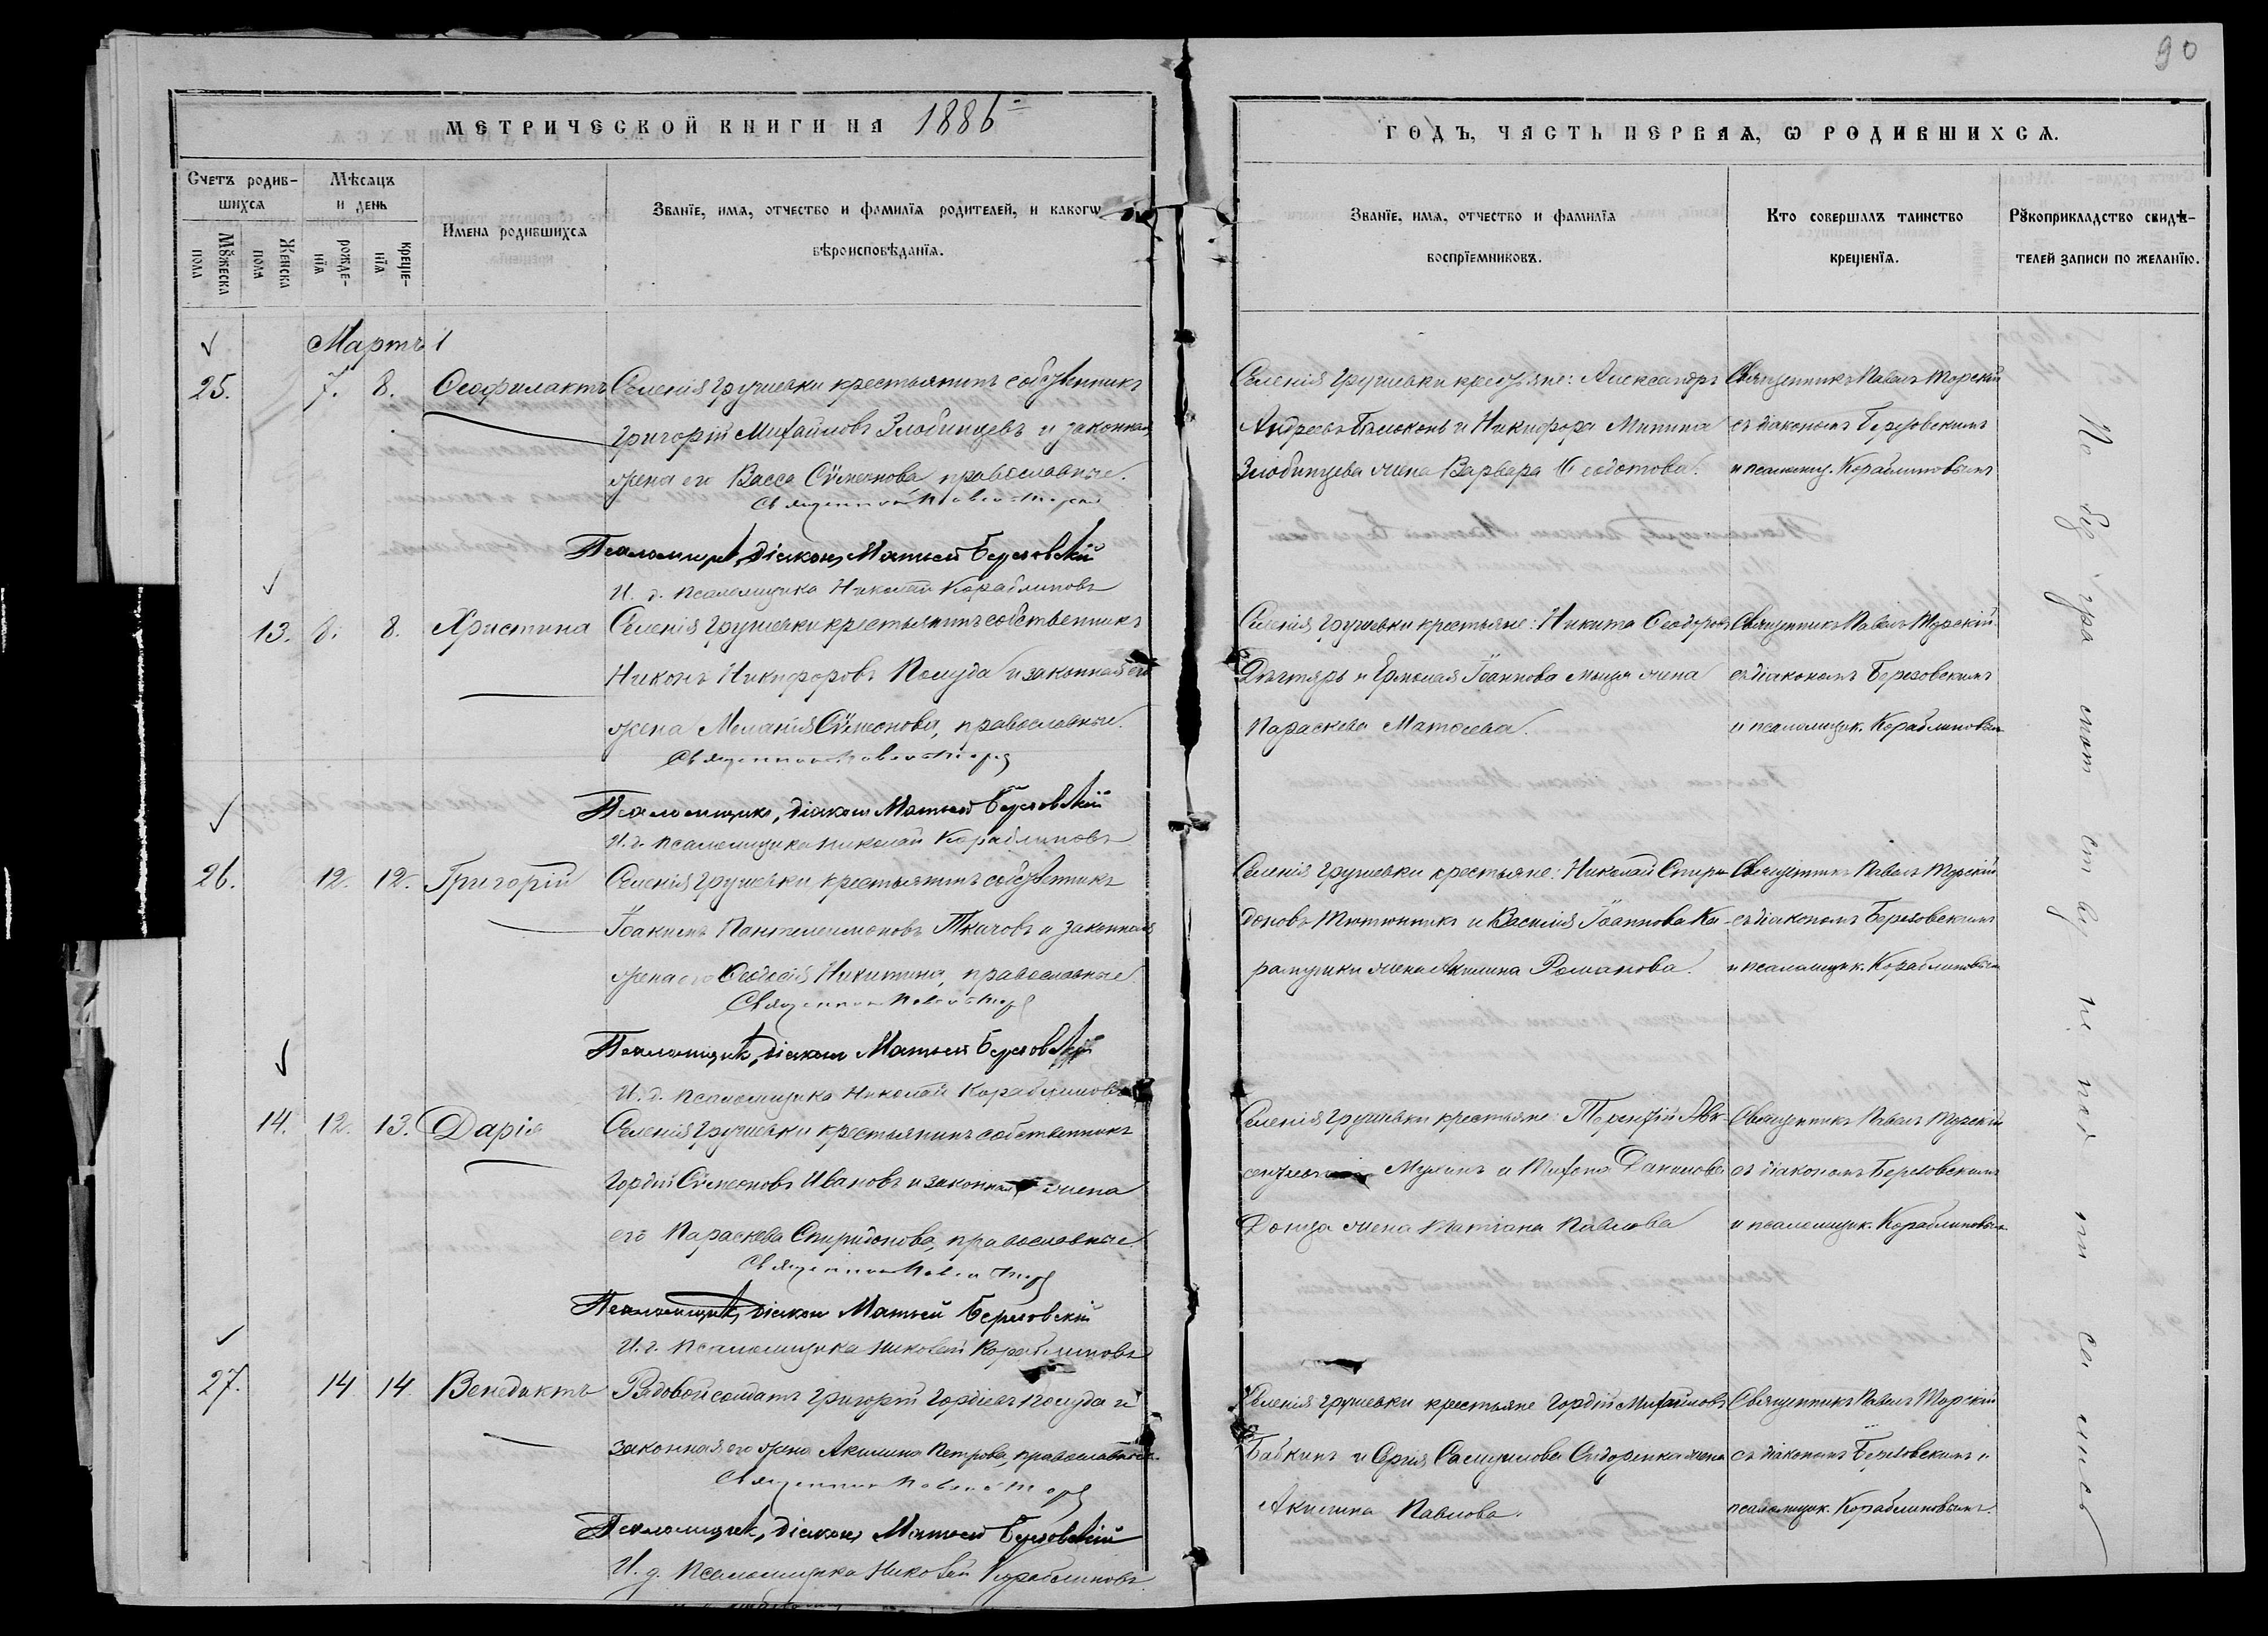 90
МЕТРИЧЕСКОЙ КНИГИ НА 1886
ГОДЪ, ЧАСТЬ ПЕРВАЯ, Ѡ РОДИВШИХСѦ.
Счетъ родив-
шихсѧ
Мѣсѧцъ
и день
Имена родившихсѧ
Званїе, имѧ, отчество и фамилїѧ родителей, и какогѡ
вѣроисповѣданїѧ.
Мꙋжеска
пола
Женска
пола
рожде-
нїѧ
креще-
нїѧ
Званїе, имѧ, отчество и фамилїѧ
воспрїемниковъ.
Кто совершалъ таинство
крещенїѧ.
Рꙋкоприкладство свидѣ-
телей записи по желанїю.
Мартъ
25. 7. 8. Ѳеофилактъ Селенія Грушевки крестьянинъ собственникъ
Григорій Михайловъ Злобинцевъ и законная
жена его Васса Сѵмеонова православные.
Священникъ Павелъ Морскій
Псаломщикъ, діаконъ Матѳей Березовскій
И. д. псаломщика Николай Кораблиновъ
Селенія Грушевки крестьяне: Александръ
Андреевъ Бѣлоконь и Никифора Минина
Злобинцева жена Варвара Ѳедотова.
Священникъ Павелъ Морскій
съ діакономъ Березовскимъ
и псаломщ. Кораблиновымъ
13. 8. 8. Христина Селенія Грушевки крестьянинъ собственникъ
Никонъ Никифоровъ Полуда и законная его
жена Меланія Сѵмеонова, православные.
Священникъ Павелъ Морскій
Псаломщикъ, діаконъ Матѳей Березовскій
И. д. псаломщика Николай Кораблиновъ
Селенія Грушевки крестьяне: Никита Ѳеодоровъ
Дегтярь и Ермолая Іоаннова жена
Параскева Матѳеева.
Священникъ Павелъ Морскій
съ діакономъ Березовскимъ
и псаломщик. Кораблиновымъ
26. 12. 12. Григорій Селенія Грушевки крестьянинъ собственникъ
Іоакимъ Пантелеимоновъ Ткачовъ и законная
жена его Ѳеодосія Никитина, православные
Священникъ Павелъ Морскій
Псаломщикъ, діаконъ Матѳей Березовскій
И. д. псаломщика Николай Кораблиновъ
Селенія Грушевки крестьяне: Николай Спири-
доновъ Тютюнникъ и Василія Іоаннова Ка-
жена Акилина Романова.
Священникъ Павелъ Морскій
съ діакономъ Березовскимъ
и псаломщик. Кораблиновымъ
14. 12. 13. Дарія Селенія Грушевки крестьянинъ собственникъ
Гордій Сѵмеоновъ Ивановъ и законная жена
его Параскева Спиридонова, православные.
Священникъ Павелъ Морскій
Псаломщикъ, діаконъ Матѳей Березовскій
И. д. псаломщика Николай Кораблиновъ
Селенія Грушевки крестьяне: Терентій Авк-
сентьевъ и Тихона Данилова
Донца жена Татіана Павлова
Священникъ Павелъ Морскій
съ діакономъ Березовскимъ
и псаломщик. Кораблиновымъ
27. 14 14. Венедиктъ Рядовой солдатъ Григорій Гордіевъ Полуда и
законная его жена Акилина Петрова, православные.
Священникъ Павелъ Морскій
Псаломщикъ, діаконъ Матѳей Березовскій
И. д. псаломщика Николай Кораблиновъ.
Селенія Грушевки крестьяне Гордій Михайловъ
Бабкинъ и Сергія Самуилова Сидоренка жена
Акилина Павлова.
Священникъ Павелъ Морскій
съ діакономъ Березовскимъ и
псаломщик. Кораблиновымъ.
По безграмотству не подписались